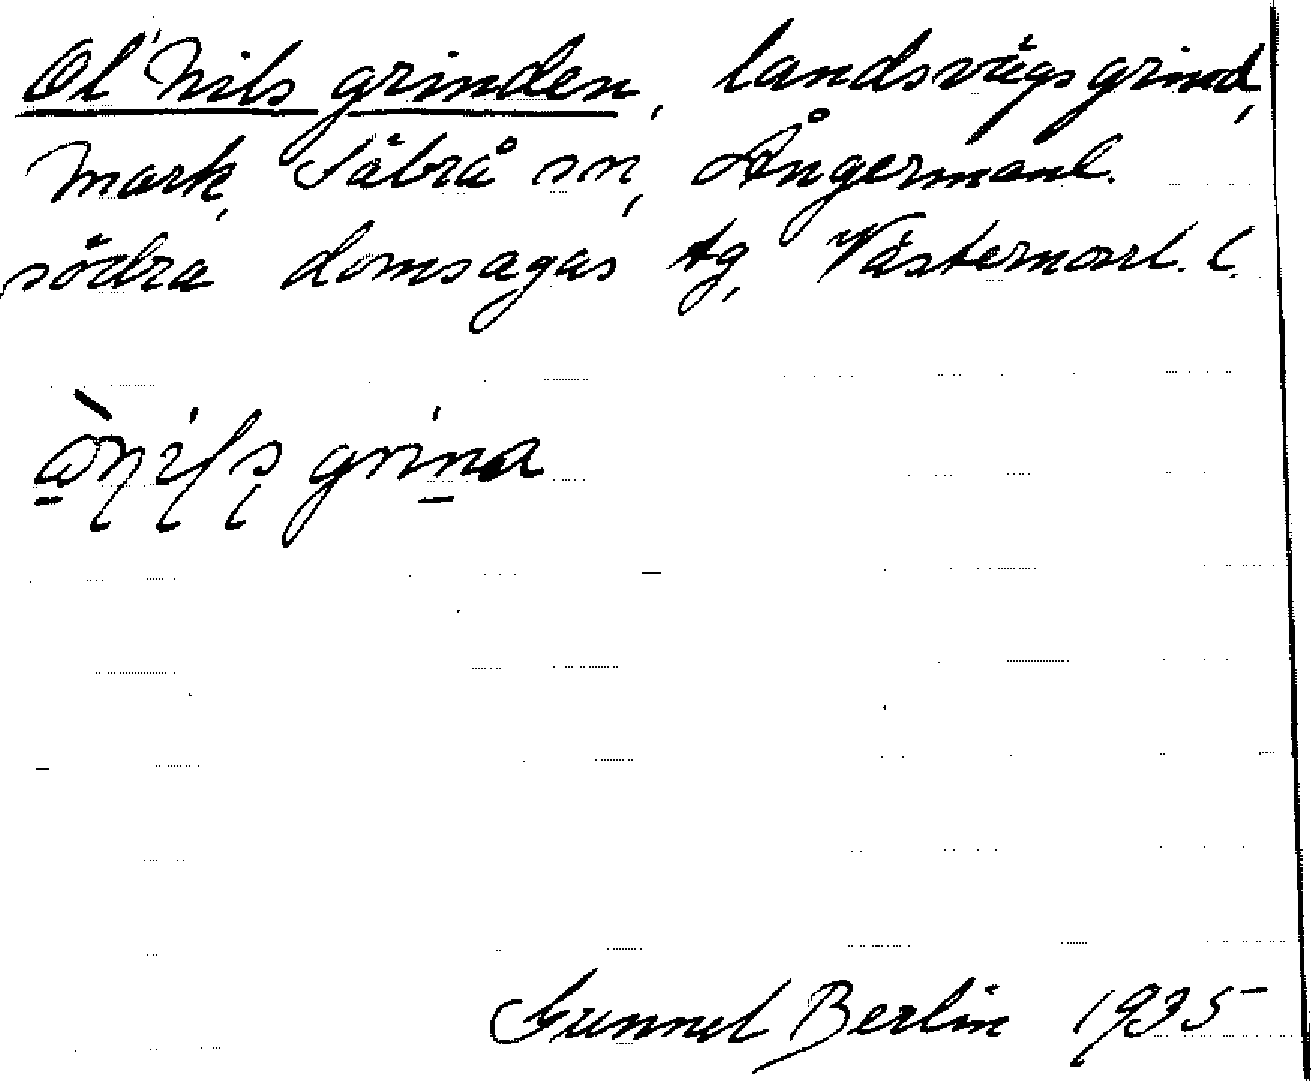 Ol'Nils grinden, landsvägsgrind,
Mark, Säbrå sn, Ångermanl.
södra domsagas tg, Västernorrl. l.
grina
Gunnel Berlin 1935